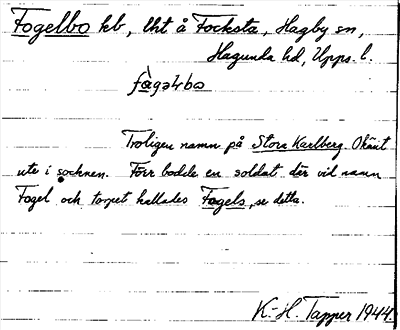 Fogelbo kb, lht å Focksta, Hagby sn,
Hagunda hd, Upps. l.
få̀gəɫbo
Troligen namn på Stora Karlberg. Okänt
ute i socknen. Förr bodde en soldat där vid namn
Fogel och torpet kallades Fogels, se detta.
K.-H. Tapper 1944.